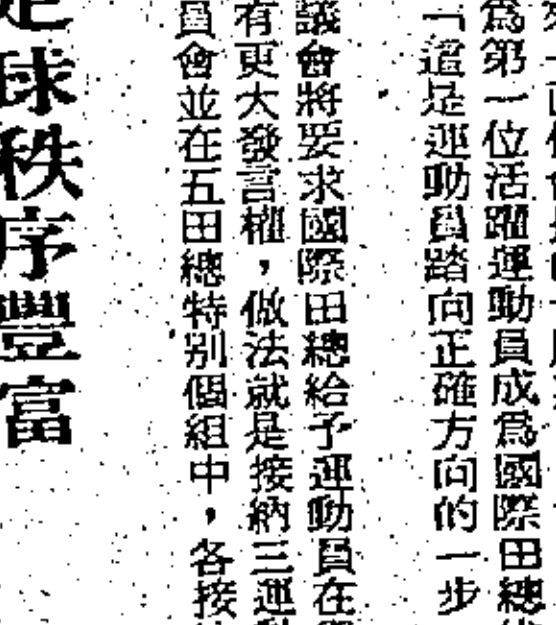 爲第一位活躍運動員成爲國際田總
「這是運動員踏向正確方向的一步
議會將要求國際田總給予運動員在
有更大發言權，做法就是接納三運
員會並在五田總特別個組中，各接
球秩序豐富